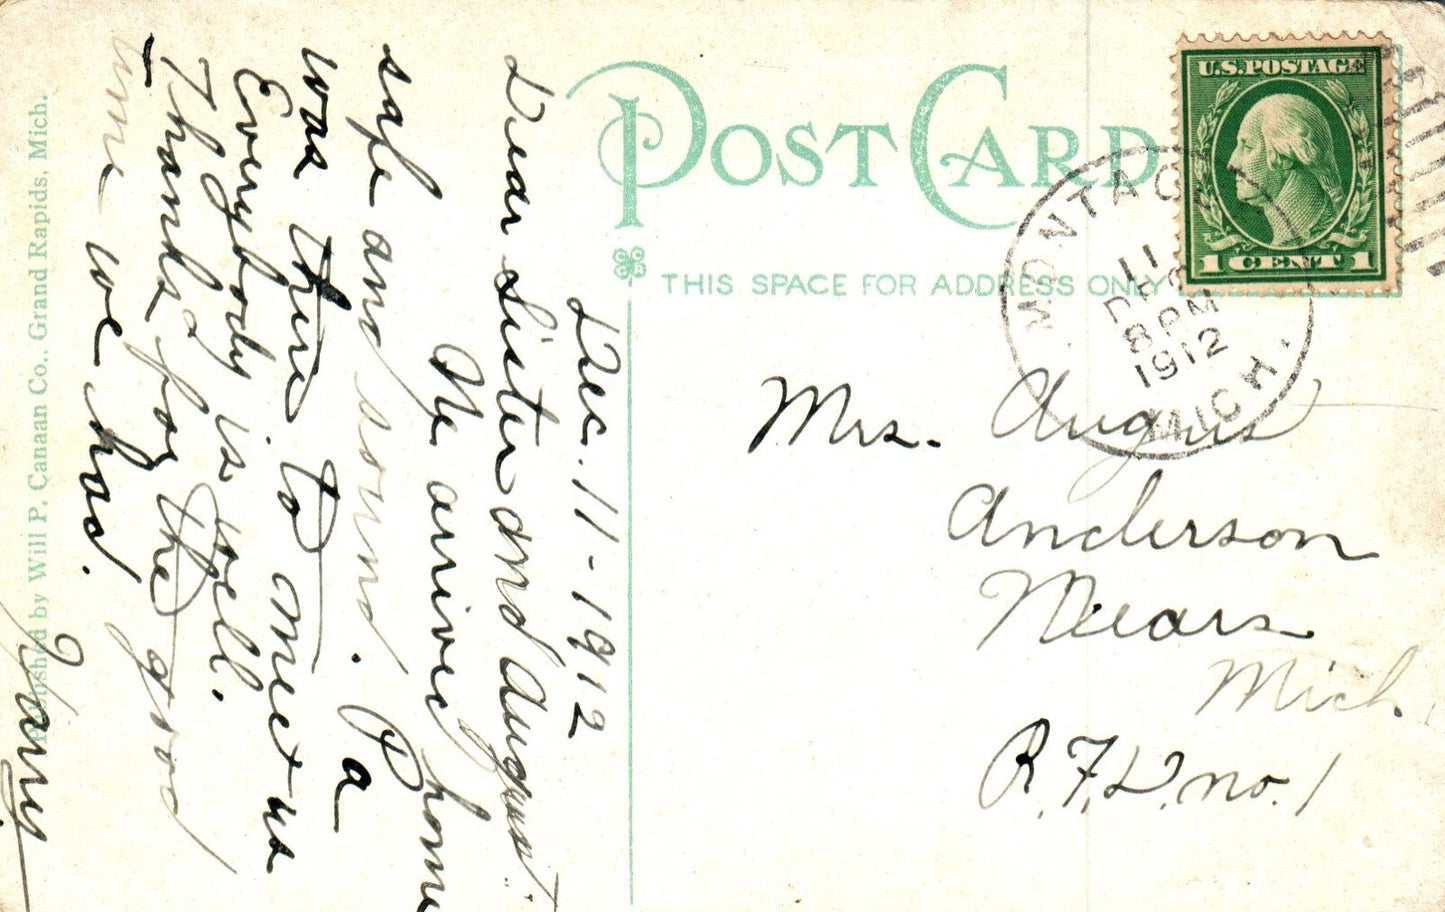 POST CARD
THIS SPACE FOR ADDRESS ONLY
U.S. POSTAGE
1 CENT 1
MONTAGUE MICH.
11
DEC
8 PM
1912
Mrs. August
Anderson
Mears
Mich.
R.F.D. no. 1
Dec. 11 - 1912
Dear Sister and August.
We arrived home
safe and sound. Pa
was there to meet us
Everybody is well.
Thanks for the good
time we had.
Published by Will P. Canaan Co., Grand Rapids, Mich.